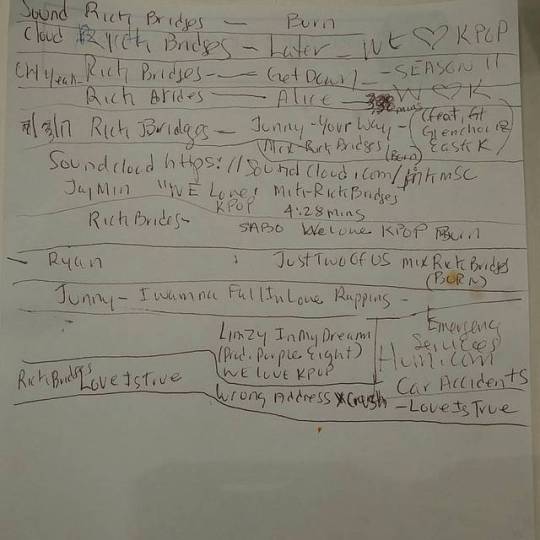 Sound Rich Bridges — Burn
Cloud Rich Bridges - Later - WE ♡ KPOP
Oh Yeah Rich Bridges — Get Down - SEASON 11
Rich Brides — Alice — W ♡ K
Rich Bridges - Junny - Your Way - (feat,
Glenchoice
Mix Rich Bridges East K)
(Burn)
Soundcloud https://soundcloud.com/
JayMin "WE Love Mix-Rich Bridges
KPOP 4:28 mins
Rich Brides- SABO We Love KPOP Burn
- Ryan : Just Two Of US mix Rich Bridges
(BURN)
Junny - I wamna Fall In Love Rapping -
Limzy In My Dream Emergency
(Prod. Purple Eight) Services
WE LOVE KPOP .com
Rich Bridges Car Accidents
Love Is True Wrong Address X Crush - Love Is True